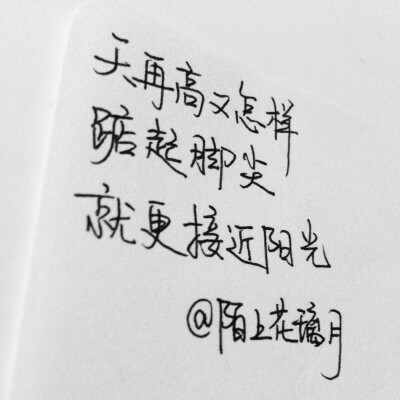 天再高又怎样
踮起脚尖
就更接近阳光
@陌上花璃月